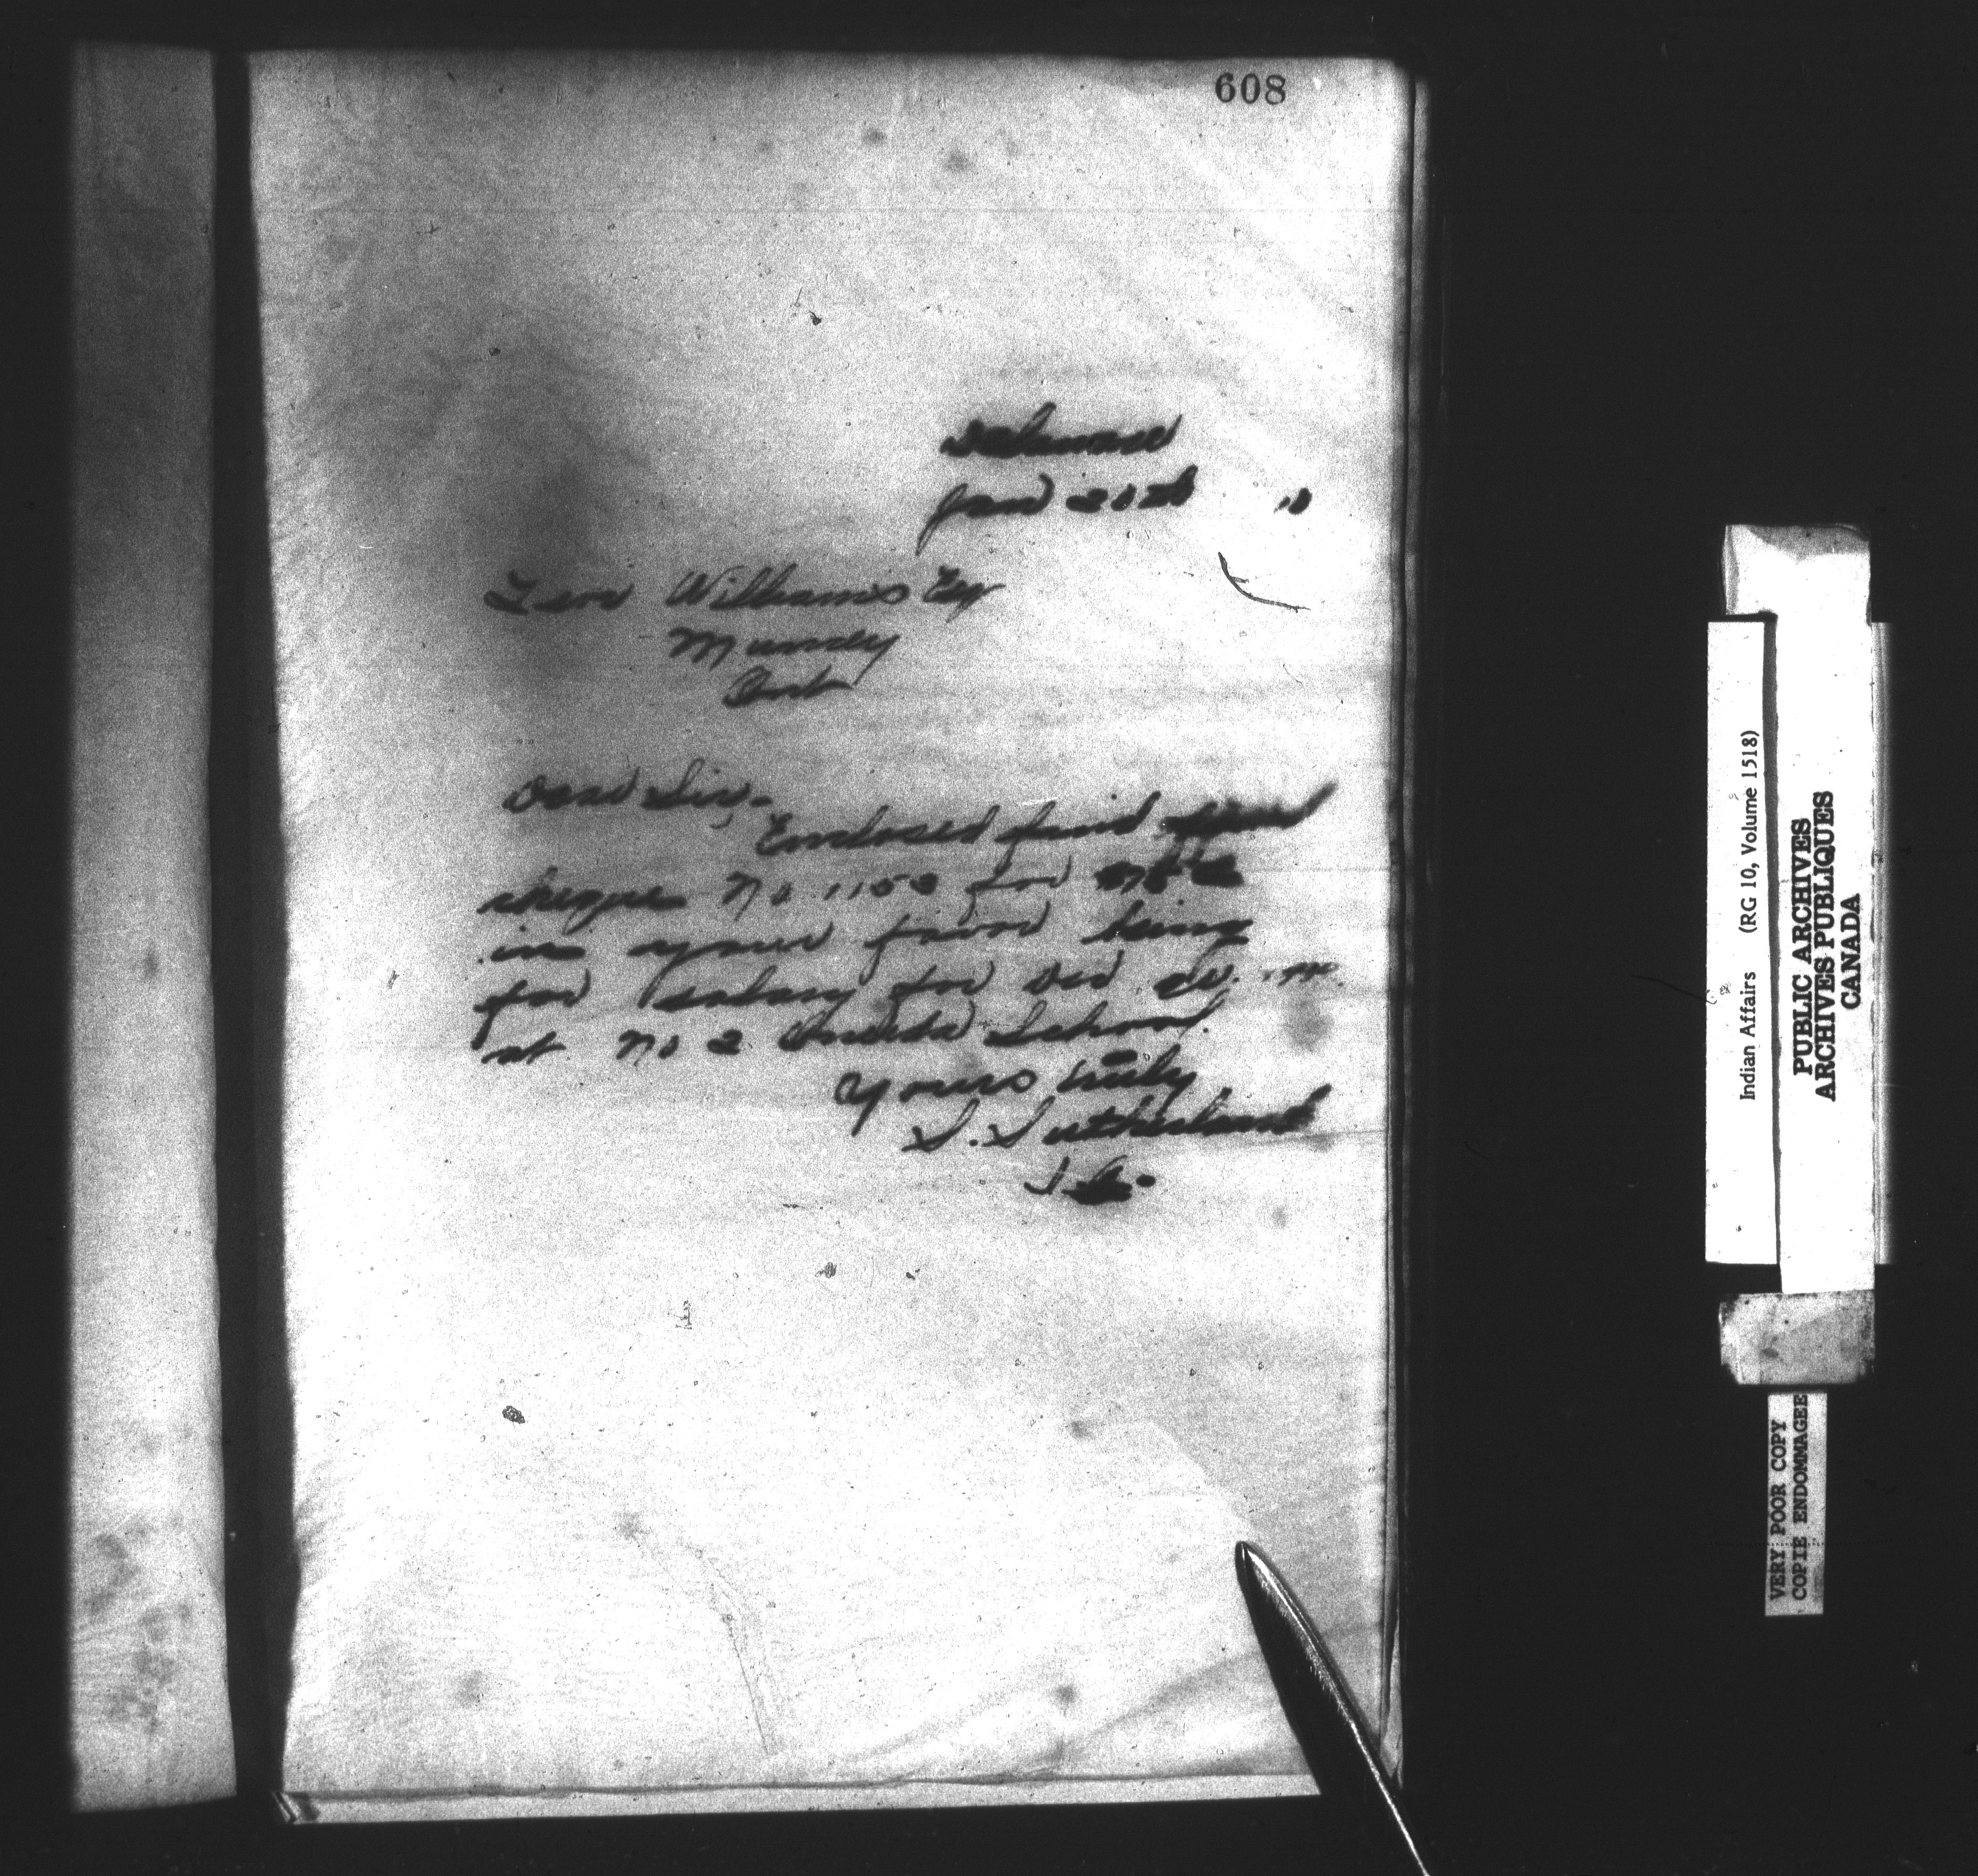 608
Delaware
Jan 20th 10
Levi Williams Esq
Muncey
Ont
Dear Sir.
Enclosed find
cheque No 1153 for
in your favor being
for salary for Dec qr.
at No 2 Oneida School.
Yours truly
S. Sutherland
I A.
Indian Affairs (RG 10, Volume 1518)
PUBLIC ARCHIVES
ARCHIVES PUBLIQUES
CANADA
VERY POOR COPY
COPIE ENDOMMAGEE